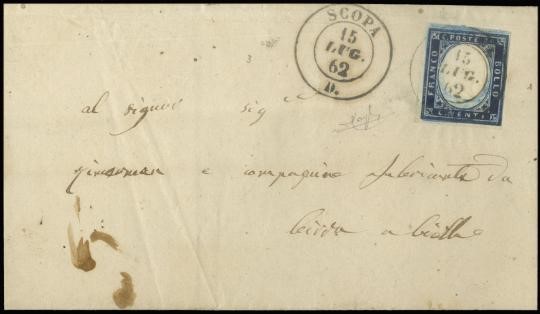 SCOPA
15
LUG.
62
D.
C. POSTE
FRANCO
BOLLO
C. VENTI
15
LUG.
62
al signor sig
e compagnia fabricante da
a Biella